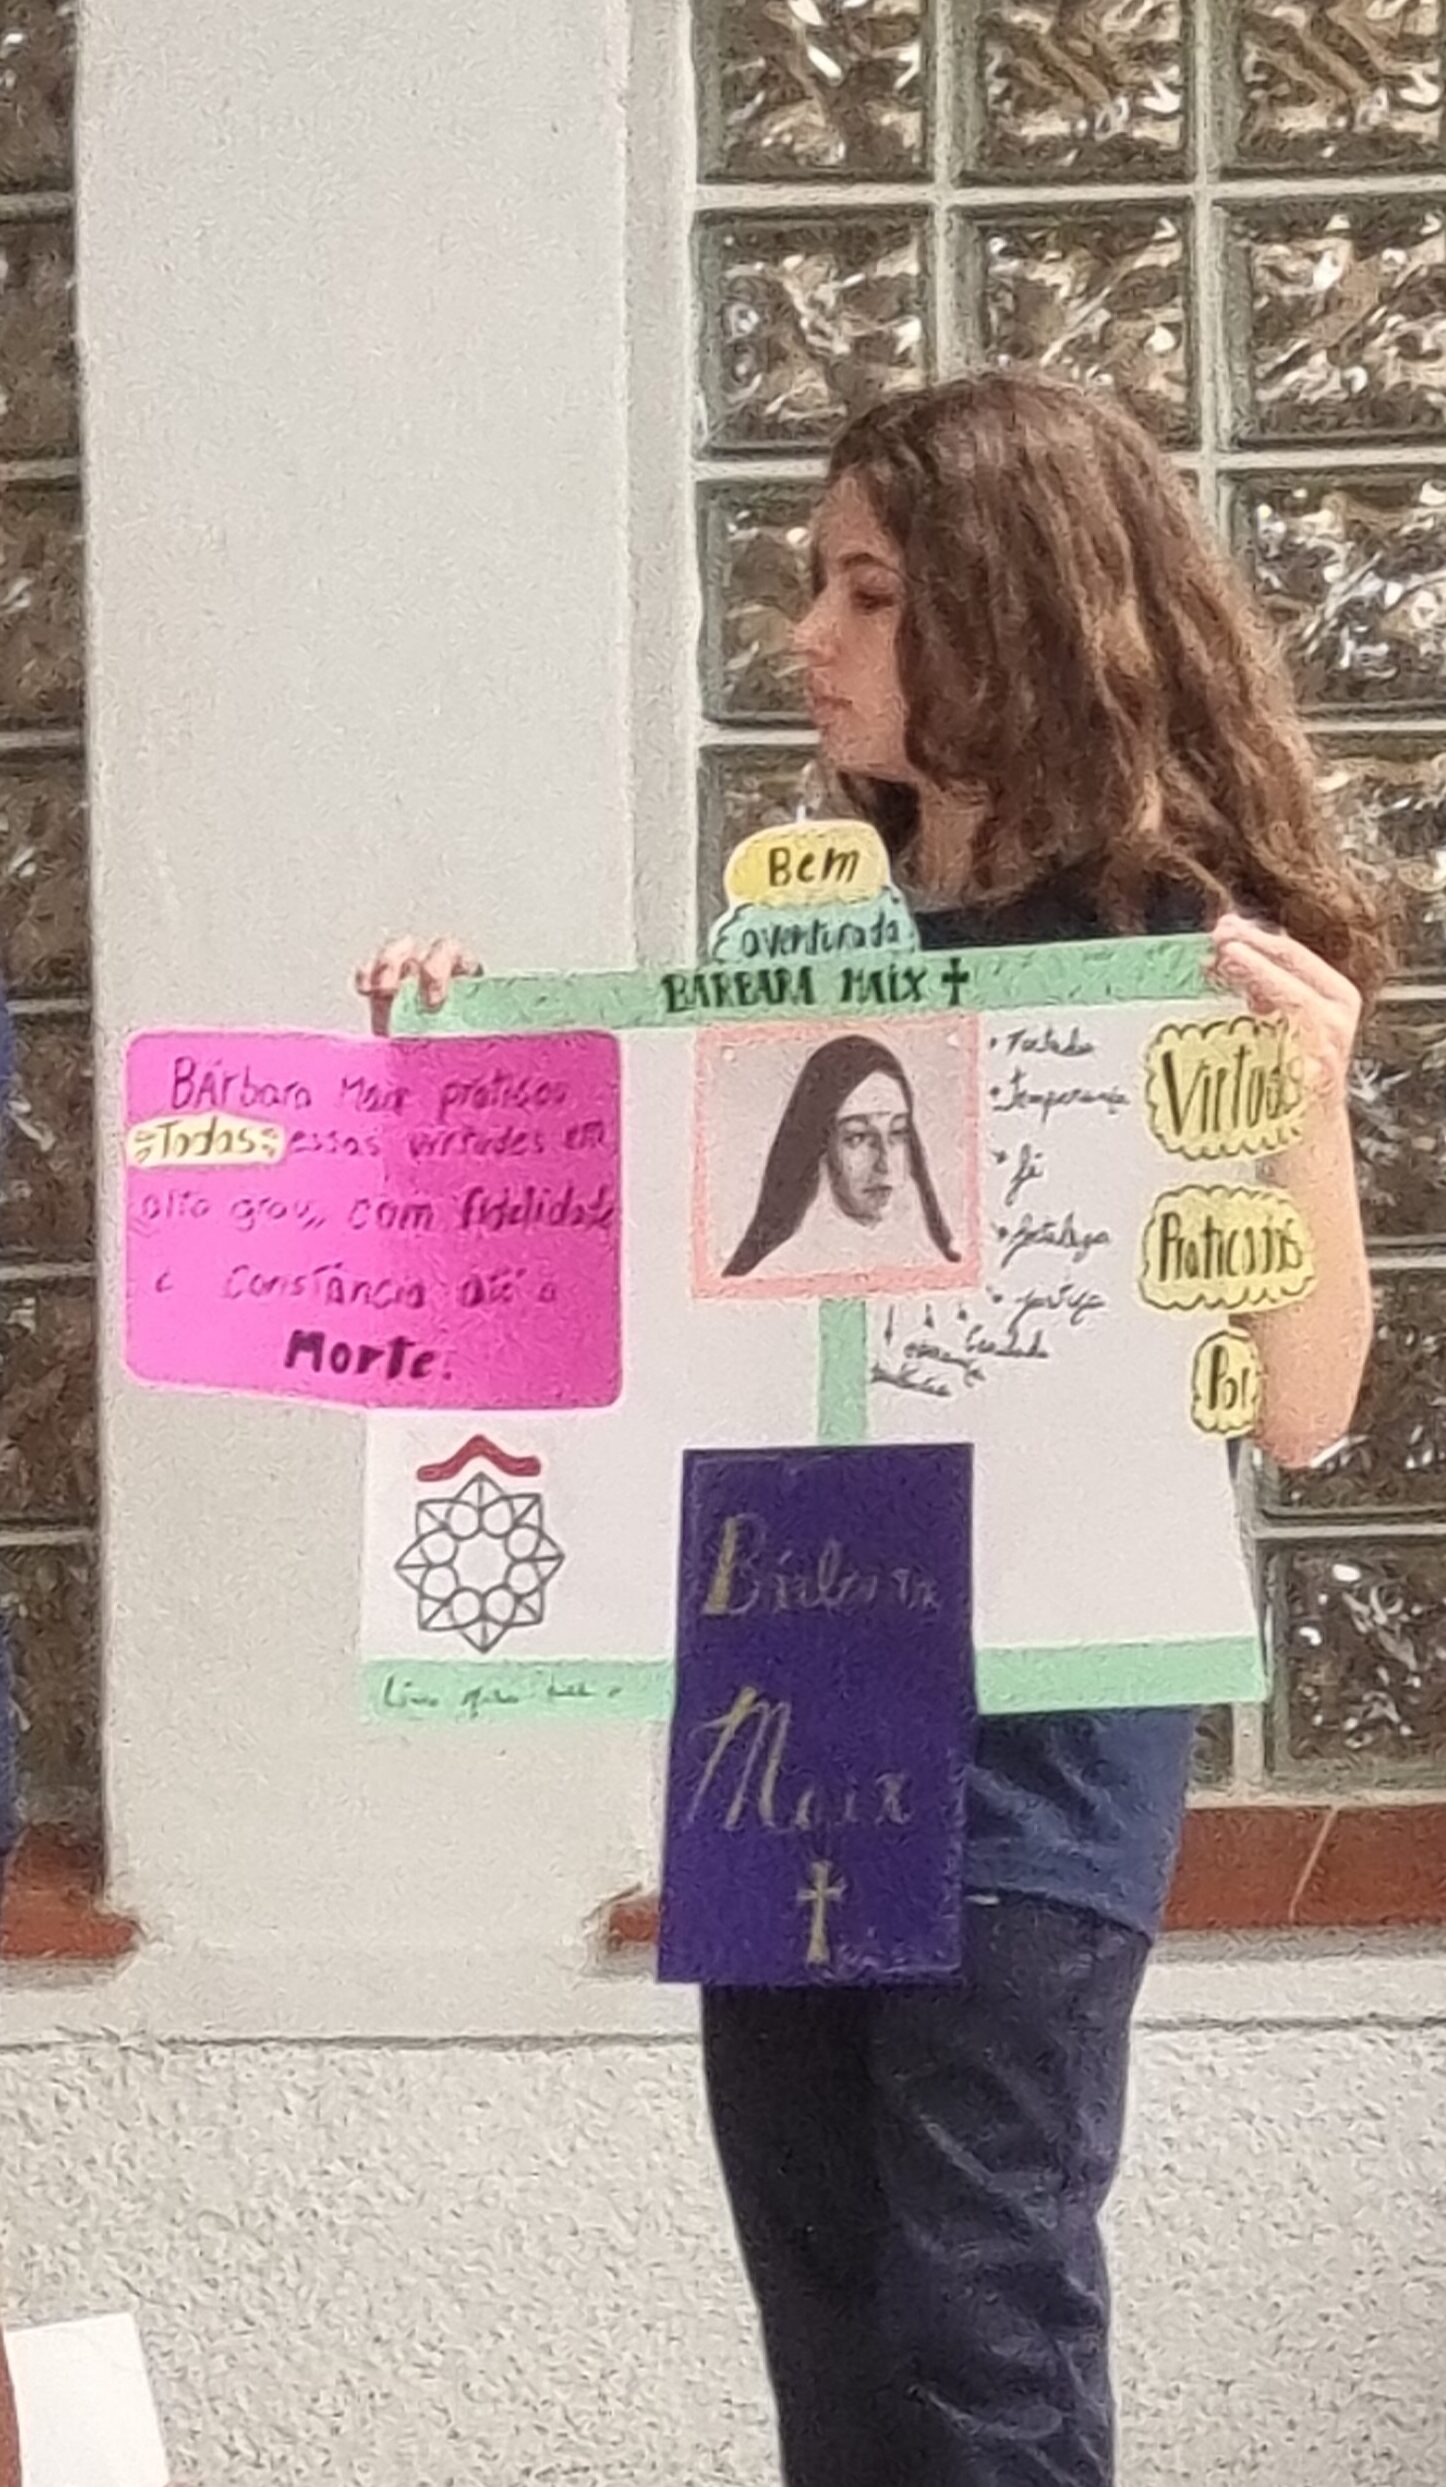 Bem
aventurada
BÁRBARA MAIX
BÁrbara Maix praticou
Todas essas virtudes em
alto grau, com fidelidade
e Constância até a
Morte.
Temperança
fé
fortaleza
justiça
Virtudes
Praticadas
Por
Bárbara
Maix